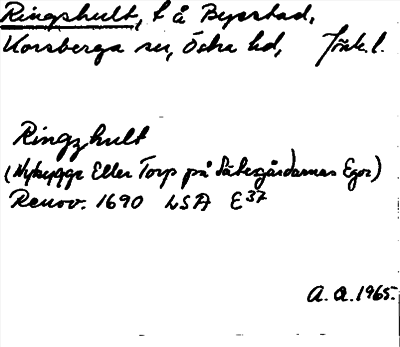 Ringshult, t å Bystad,
Korsberga sn, Östra hd, Jönk. l.
Ringzhult
(Nybygge Eller Torp på Sätergårdarnas Egor)
Renov. 1690 LSA E37
A. A. 1965.